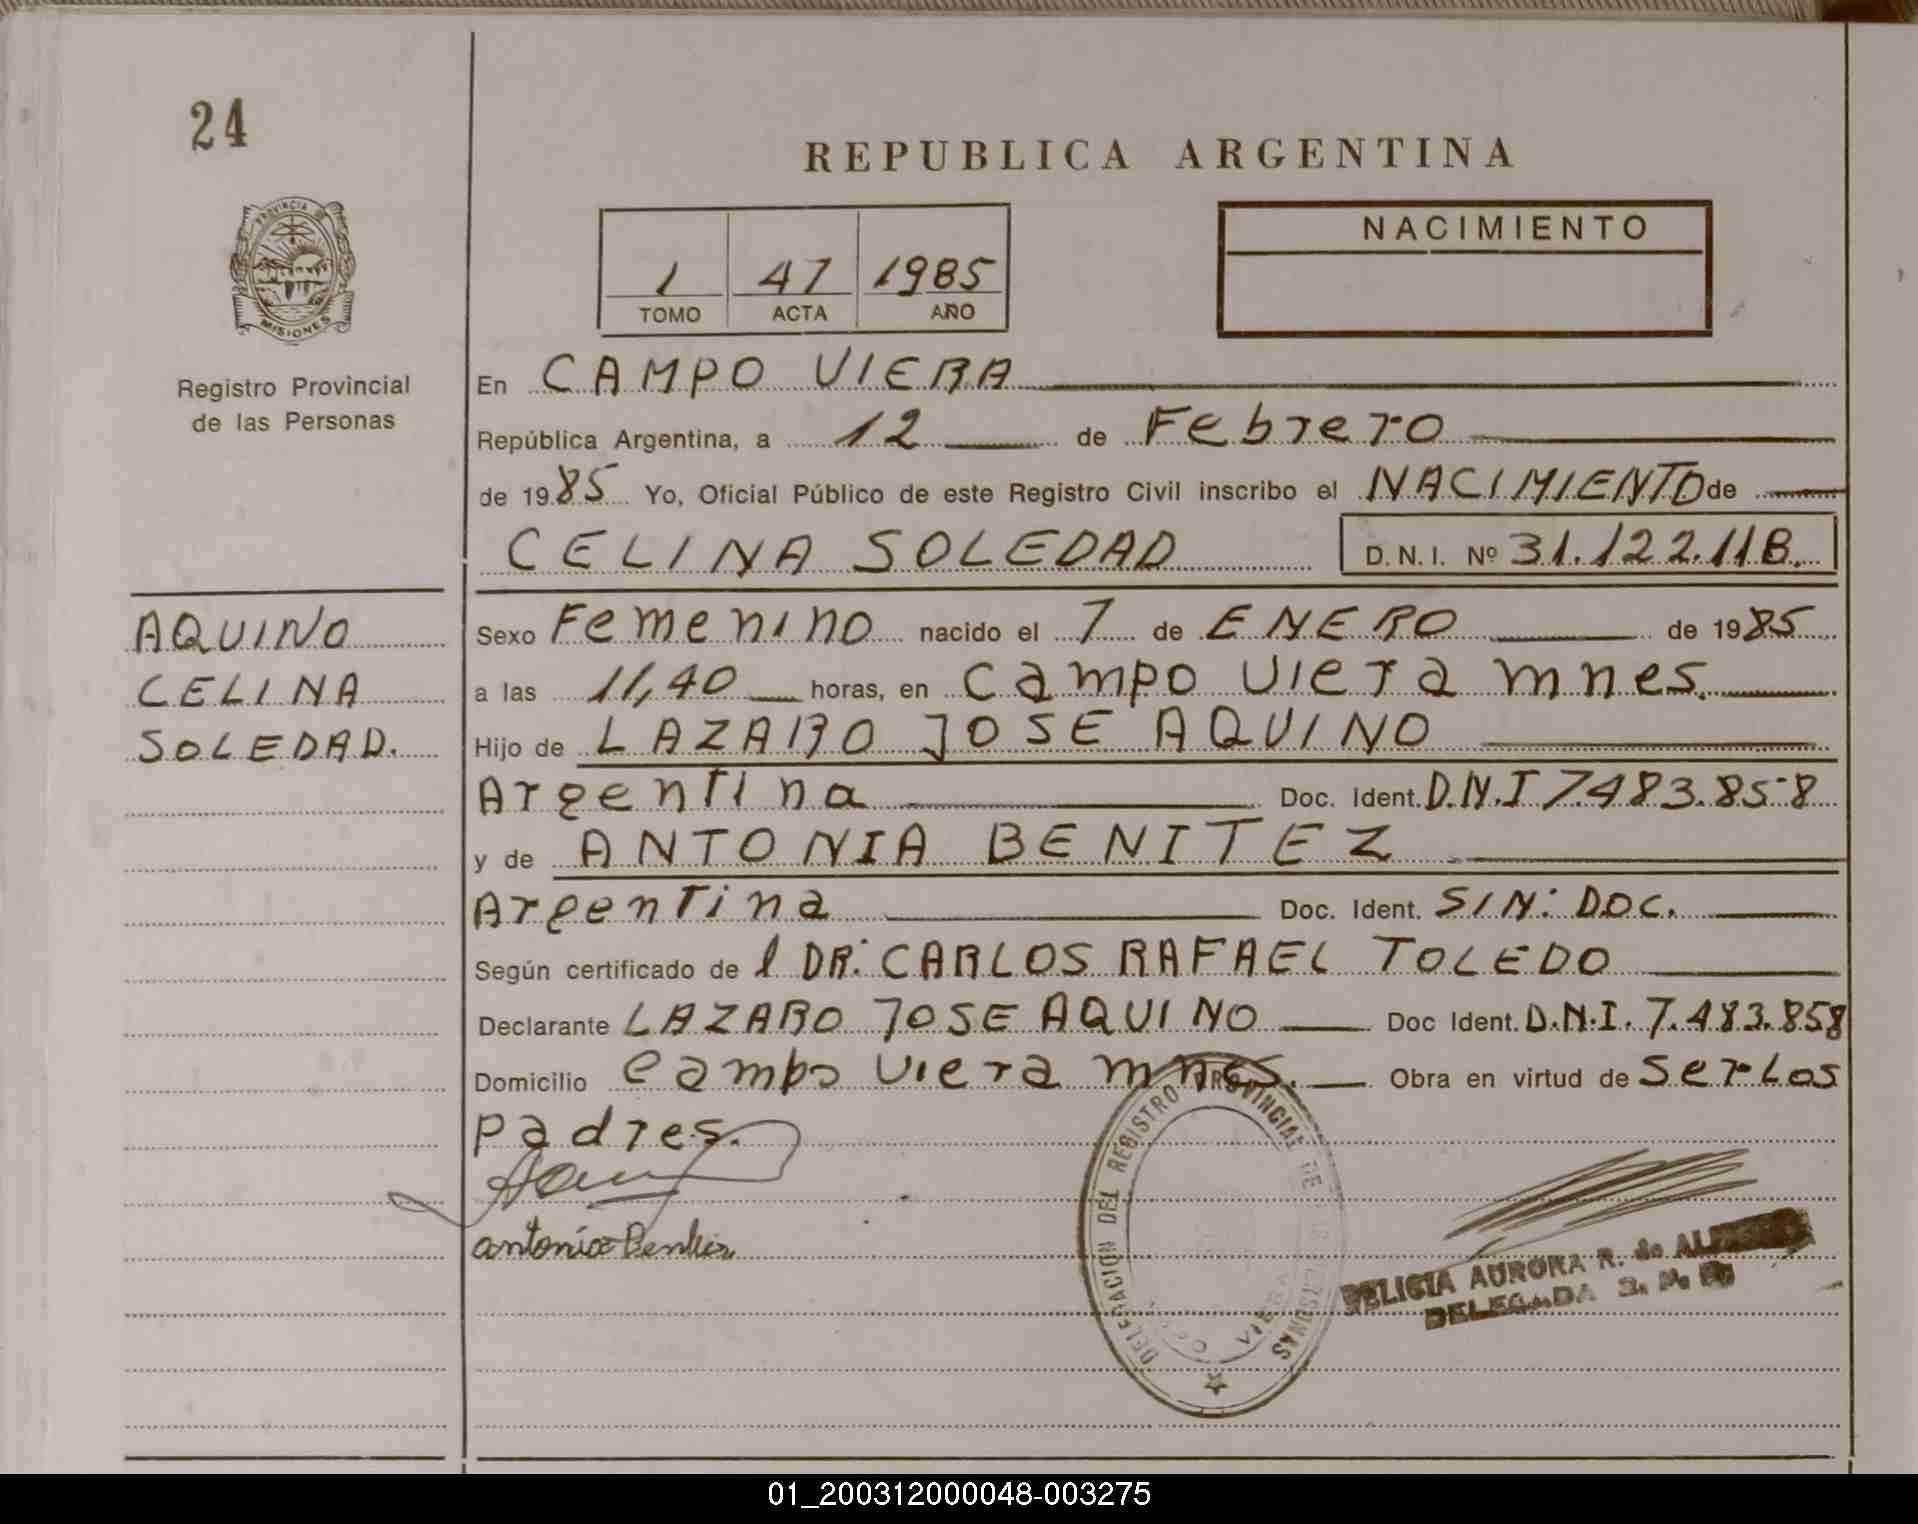 24
REPUBLICA ARGENTINA
PROVINCIA DE
MISIONES
Registro Provincial
de las Personas
1 47 1985
TOMO ACTA AÑO
NACIMIENTO
En CAMPO VIERA
República Argentina, a 12 de Febrero
de 1985 Yo, Oficial Público de este Registro Civil inscribo el NACIMIENTO de
CELINA SOLEDAD D.N.I. Nº 31.122.118.
AQUINO
CELINA
SOLEDAD.
Sexo Femenino nacido el 7 de ENERO de 1985
a las 11,40 horas, en Campo Viera mnes.
Hijo de LAZARO JOSE AQUINO
Argentina Doc. Ident. D.N.I 7.483.858
y de ANTONIA BENITEZ
Argentina Doc. Ident. SIN: DOC.
Según certificado de l DR: CARLOS RAFAEL TOLEDO
Declarante LAZARO JOSE AQUINO Doc Ident. D.N.I. 7.483.858
Domicilio Campo Viera mnes. Obra en virtud de Ser Los
padres.
antonia Benitez
DELEGACION DEL REGISTRO PROVINCIAL DE LAS PERSONAS
VIERA
DELICIA AURORA R. de
DELEGADA
01_200312000048-003275